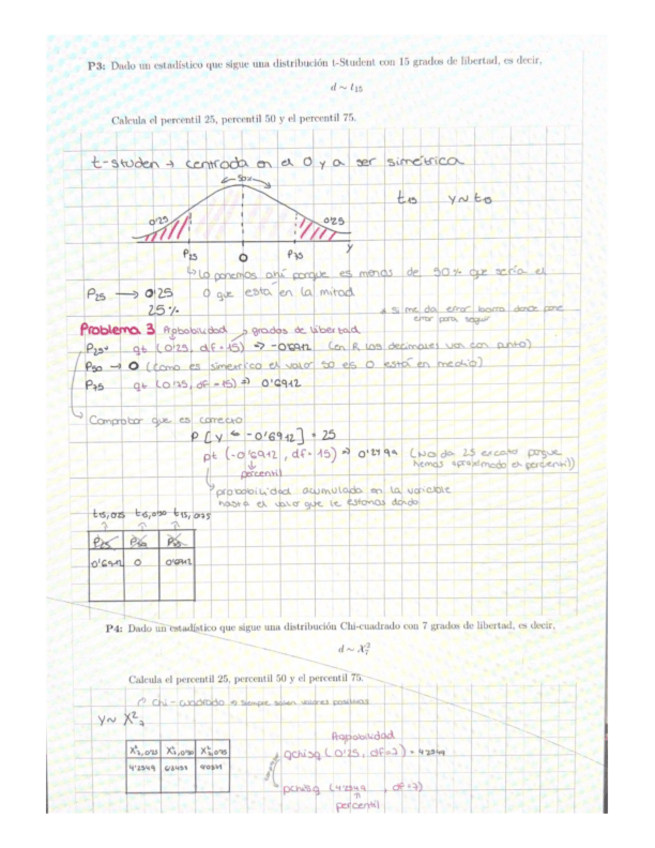 P3: Dado un estadístico que sigue una distribución t-Student con 15 grados de libertad, es decir,
d ~ t15
Calcula el percentil 25, percentil 50 y el percentil 75.
t-studen → centrada en el 0 y a ser simétrica
50%
t15 Y~t15
0'25 0'25
P25 0 P75 Y
↳ Lo ponemos ahí porque es menos de 50% que sería el
P25 → 0'25 0 que está en la mitad
25%
* si me da error borra donde pone
error para seguir
Problema 3 Probabilidad → grados de libertad
P25 qt (0'25, df = 15) => -0'6912 (en R los decimales van con punto)
P50 → 0 (como es simétrico el valor 50 es 0 está en medio)
P75 qt (0'75, df = 15) => 0'6912
Comprobar que es correcto
P[Y ≤ -0'6912] = 25
pt (-0'6912, df = 15) => 0'2499 (No da 25 exacto porque
hemos aproximado el percentil)
percentil
probabilidad acumulada en la variable
hasta el valor que le estamos dando
P25 P50
0'6912 0 0'6912
P4: Dado un estadístico que sigue una distribución Chi-cuadrado con 7 grados de libertad, es decir,
d ~ X²7
Calcula el percentil 25, percentil 50 y el percentil 75.
Chi-cuadrado siempre salen valores positivos
Y~ X²7
Probabilidad
qchisq (0'25, df=7) = 4'2549
4'2549
pchisq (4'2549, df=7)
percentil